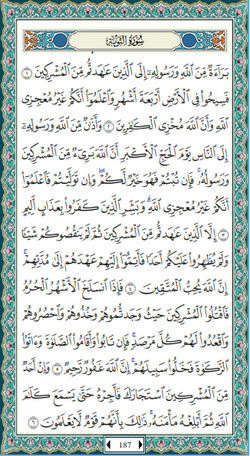 سُورَةُ التَّوْبَةِ
بَرَآءَةٌ مِّنَ ٱللَّهِ وَرَسُولِهِۦٓ إِلَى ٱلَّذِينَ عَٰهَدتُّم مِّنَ ٱلْمُشْرِكِينَ ١
فَسِيحُوا۟ فِى ٱلْأَرْضِ أَرْبَعَةَ أَشْهُرٍ وَٱعْلَمُوٓا۟ أَنَّكُمْ غَيْرُ مُعْجِزِى
ٱللَّهِ وَأَنَّ ٱللَّهَ مُخْزِى ٱلْكَٰفِرِينَ ٢ وَأَذَٰنٌ مِّنَ ٱللَّهِ وَرَسُولِهِۦٓ
إِلَى ٱلنَّاسِ يَوْمَ ٱلْحَجِّ ٱلْأَكْبَرِ أَنَّ ٱللَّهَ بَرِىٓءٌ مِّنَ ٱلْمُشْرِكِينَ
وَرَسُولُهُۥ ۚ فَإِن تُبْتُمْ فَهُوَ خَيْرٌ لَّكُمْ ۖ وَإِن تَوَلَّيْتُمْ فَٱعْلَمُوٓا۟
أَنَّكُمْ غَيْرُ مُعْجِزِى ٱللَّهِ ۗ وَبَشِّرِ ٱلَّذِينَ كَفَرُوا۟ بِعَذَابٍ أَلِيمٍ
٣ إِلَّا ٱلَّذِينَ عَٰهَدتُّم مِّنَ ٱلْمُشْرِكِينَ ثُمَّ لَمْ يَنقُصُوكُمْ شَيْـًٔا
وَلَمْ يُظَٰهِرُوا۟ عَلَيْكُمْ أَحَدًا فَأَتِمُّوٓا۟ إِلَيْهِمْ عَهْدَهُمْ إِلَىٰ مُدَّتِهِمْ ۚ
إِنَّ ٱللَّهَ يُحِبُّ ٱلْمُتَّقِينَ ٤ فَإِذَا ٱنسَلَخَ ٱلْأَشْهُرُ ٱلْحُرُمُ
فَٱقْتُلُوا۟ ٱلْمُشْرِكِينَ حَيْثُ وَجَدتُّمُوهُمْ وَخُذُوهُمْ وَٱحْصُرُوهُمْ
وَٱقْعُدُوا۟ لَهُمْ كُلَّ مَرْصَدٍ ۚ فَإِن تَابُوا۟ وَأَقَامُوا۟ ٱلصَّلَوٰةَ وَءَاتَوُا۟
ٱلزَّكَوٰةَ فَخَلُّوا۟ سَبِيلَهُمْ ۚ إِنَّ ٱللَّهَ غَفُورٌ رَّحِيمٌ ٥ وَإِنْ أَحَدٌ
مِّنَ ٱلْمُشْرِكِينَ ٱسْتَجَارَكَ فَأَجِرْهُ حَتَّىٰ يَسْمَعَ كَلَٰمَ
ٱللَّهِ ثُمَّ أَبْلِغْهُ مَأْمَنَهُۥ ۚ ذَٰلِكَ بِأَنَّهُمْ قَوْمٌ لَّا يَعْلَمُونَ ٦
187